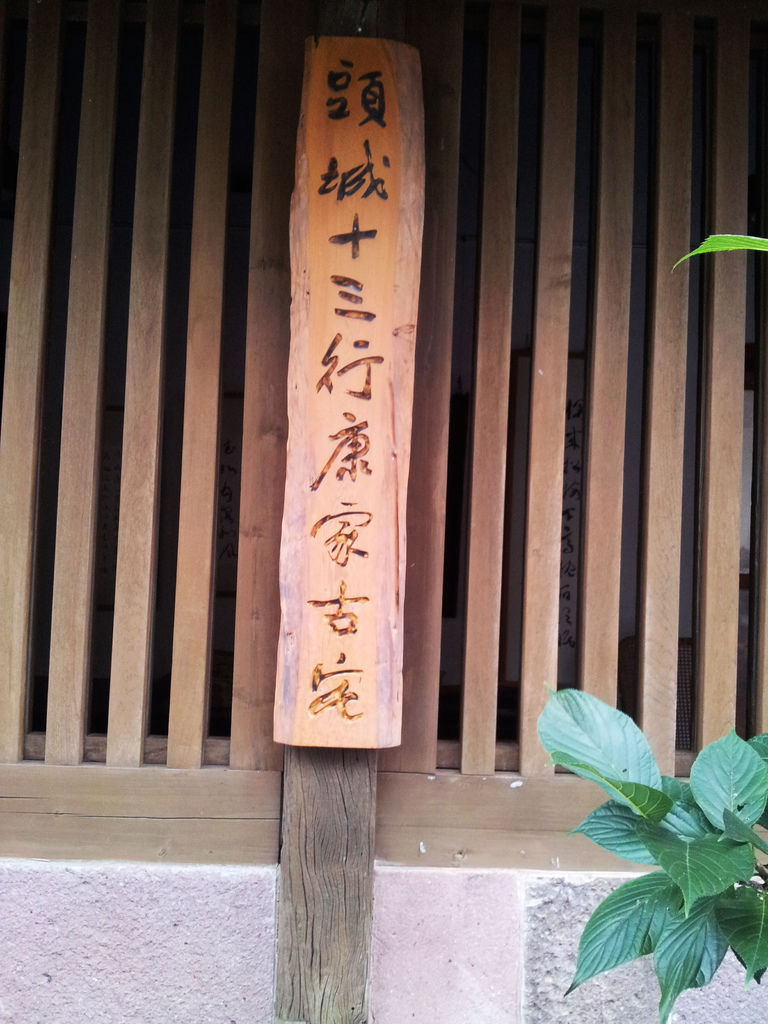 頭城十三行康家古宅